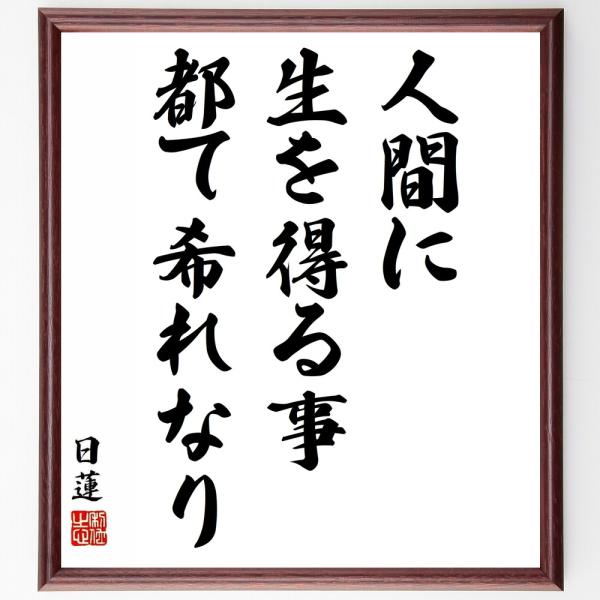 人間に
生を得る事
都て希れなり
日蓮